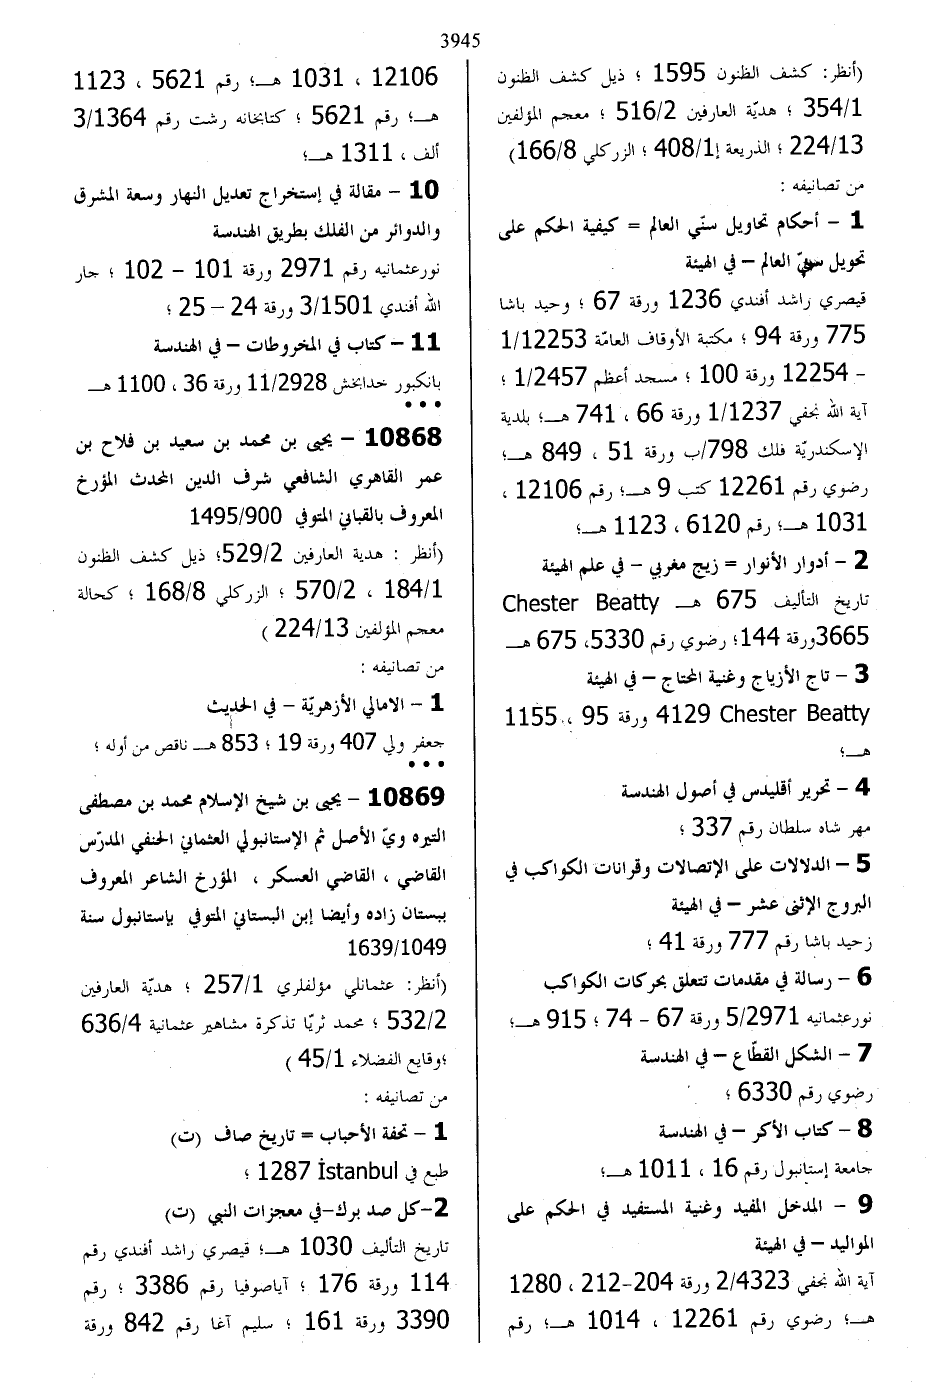 3945
(أنظر: كشف الظنون 1595 ؛ ذيل كشف الظنون
354/1 ؛ هديّة العارفين 516/2 ؛ معجم المؤلفين
224/13 ؛ الذريعة إ/408/1 ؛ الزركلي 166/8)
من تصانيفه :
1 – أحكام تحاويل سنّي العالم = كيفية الحكم على
تحويل سنيّ العالم – في الهيئة
قيصري راشد أفندي 1236 ورقة 67 ؛ وحيد باشا
775 ورقة 94 ؛ مكتبة الأوقاف العامّة 1/12253
– 12254 ورقة 100 ؛ مسجد أعظم 1/2457 ؛
آية الله نجفي 1/1237 ورقة 66 ، 741 هـ؛ بلدية
الإسكندريّة فلك 798/ب ورقة 51 ، 849 هـ؛
رضوي رقم 12261 كتب 9 هـ؛ رقم 12106 ،
1031 هـ؛ رقم 6120 ، 1123 هـ؛
2 – أدوار الأنوار = زيج مغربي – في علم الهيئة
تاريخ التأليف 675 هـ Chester Beatty
3665ورقة 144؛ رضوي رقم 5330، 675 هـ
3 – تاج الأزياج وغنية المحتاج – في الهيئة
Chester Beatty 4129 ورقة 95 ، 1155
هـ؛
4 – تحرير أقليدس في أصول الهندسة
مهر شاه سلطان رقم 337 ؛
5 – الدلالات على الإتصالات وقرانات الكواكب في
البروج الإثنى عشر – في الهيئة
زحيد باشا رقم 777 ورقة 41 ؛
6 – رسالة في مقدمات تتعلق بحركات الكواكب
نورعثمانيه 5/2971 ورقة 67 – 74 ؛ 915 هـ؛
7 – الشكل القطّاع – في الهندسة
رضوي رقم 6330 ؛
8 – كتاب الأكر – في الهندسة
جامعة إستانبول رقم 16 ، 1011 هـ؛
9 – المدخل المفيد وغنية المستفيد في الحكم على
المواليد – في الهيئة
آية الله نجفي 2/4323 ورقة 204–212 ، 1280
هـ؛ رضوي رقم 12261 ، 1014 هـ؛ رقم
12106 ، 1031 هـ؛ رقم 5621 ، 1123
هـ؛ رقم 5621 ؛ كتابخانه رشت رقم 3/1364
ألف ، 1311 هـ؛
10 – مقالة في إستخراج تعديل النهار وسعة المشرق
والدوائر من الفلك بطريق الهندسة
نورعثمانيه رقم 2971 ورقة 101 – 102 ؛ جار
الله أفندي 3/1501 ورقة 24 – 25 ؛
11 – كتاب في المخروطات – في الهندسة
بانكبور خدابخش 11/2928 ورقة 36 ، 1100 هـ
•••
10868 – يحيى بن محمد بن سعيد بن فلاح بن
عمر القاهري الشافعي شرف الدين المحدث المؤرخ
المعروف بالقباني المتوفي 1495/900
(أنظر : هدية العارفين 529/2؛ ذيل كشف الظنون
184/1 ، 570/2 ؛ الزركلي 168/8 ؛ كحالة
معجم المؤلفين 224/13 )
من تصانيفه :
1 – الامالي الأزهريّة – في الحديث
جعفر ولي 407 ورقة 19 ؛ 853 هـ ناقص من أوله ؛
•••
10869 – يحيى بن شيخ الإسلام محمد بن مصطفى
التيره ويّ الأصل ثم الإستانبولي العثماني الحنفي المدرّس
القاضي ، القاضي العسكر ، المؤرخ الشاعر المعروف
ببستان زاده وأيضا إبن البستاني المتوفي بإستانبول سنة
1639/1049
(أنظر: عثمانلي مؤلفلري 257/1 ؛ هديّة العارفين
532/2 ؛ محمد ثريّا تذكرة مشاهير عثمانية 636/4
؛وقايع الفضلاء 45/1 )
من تصانيفه :
1 – تحفة الأحباب = تاريخ صاف (ت)
طبع في İstanbul 1287 ؛
2–كل صد برك–في معجزات النبي (ت)
تاريخ التأليف 1030 هـ؛ قيصري راشد أفندي رقم
114 ورقة 176 ؛ آياصوفيا رقم 3386 ؛ رقم
3390 ورقة 161 ؛ سليم آغا رقم 842 ورقة